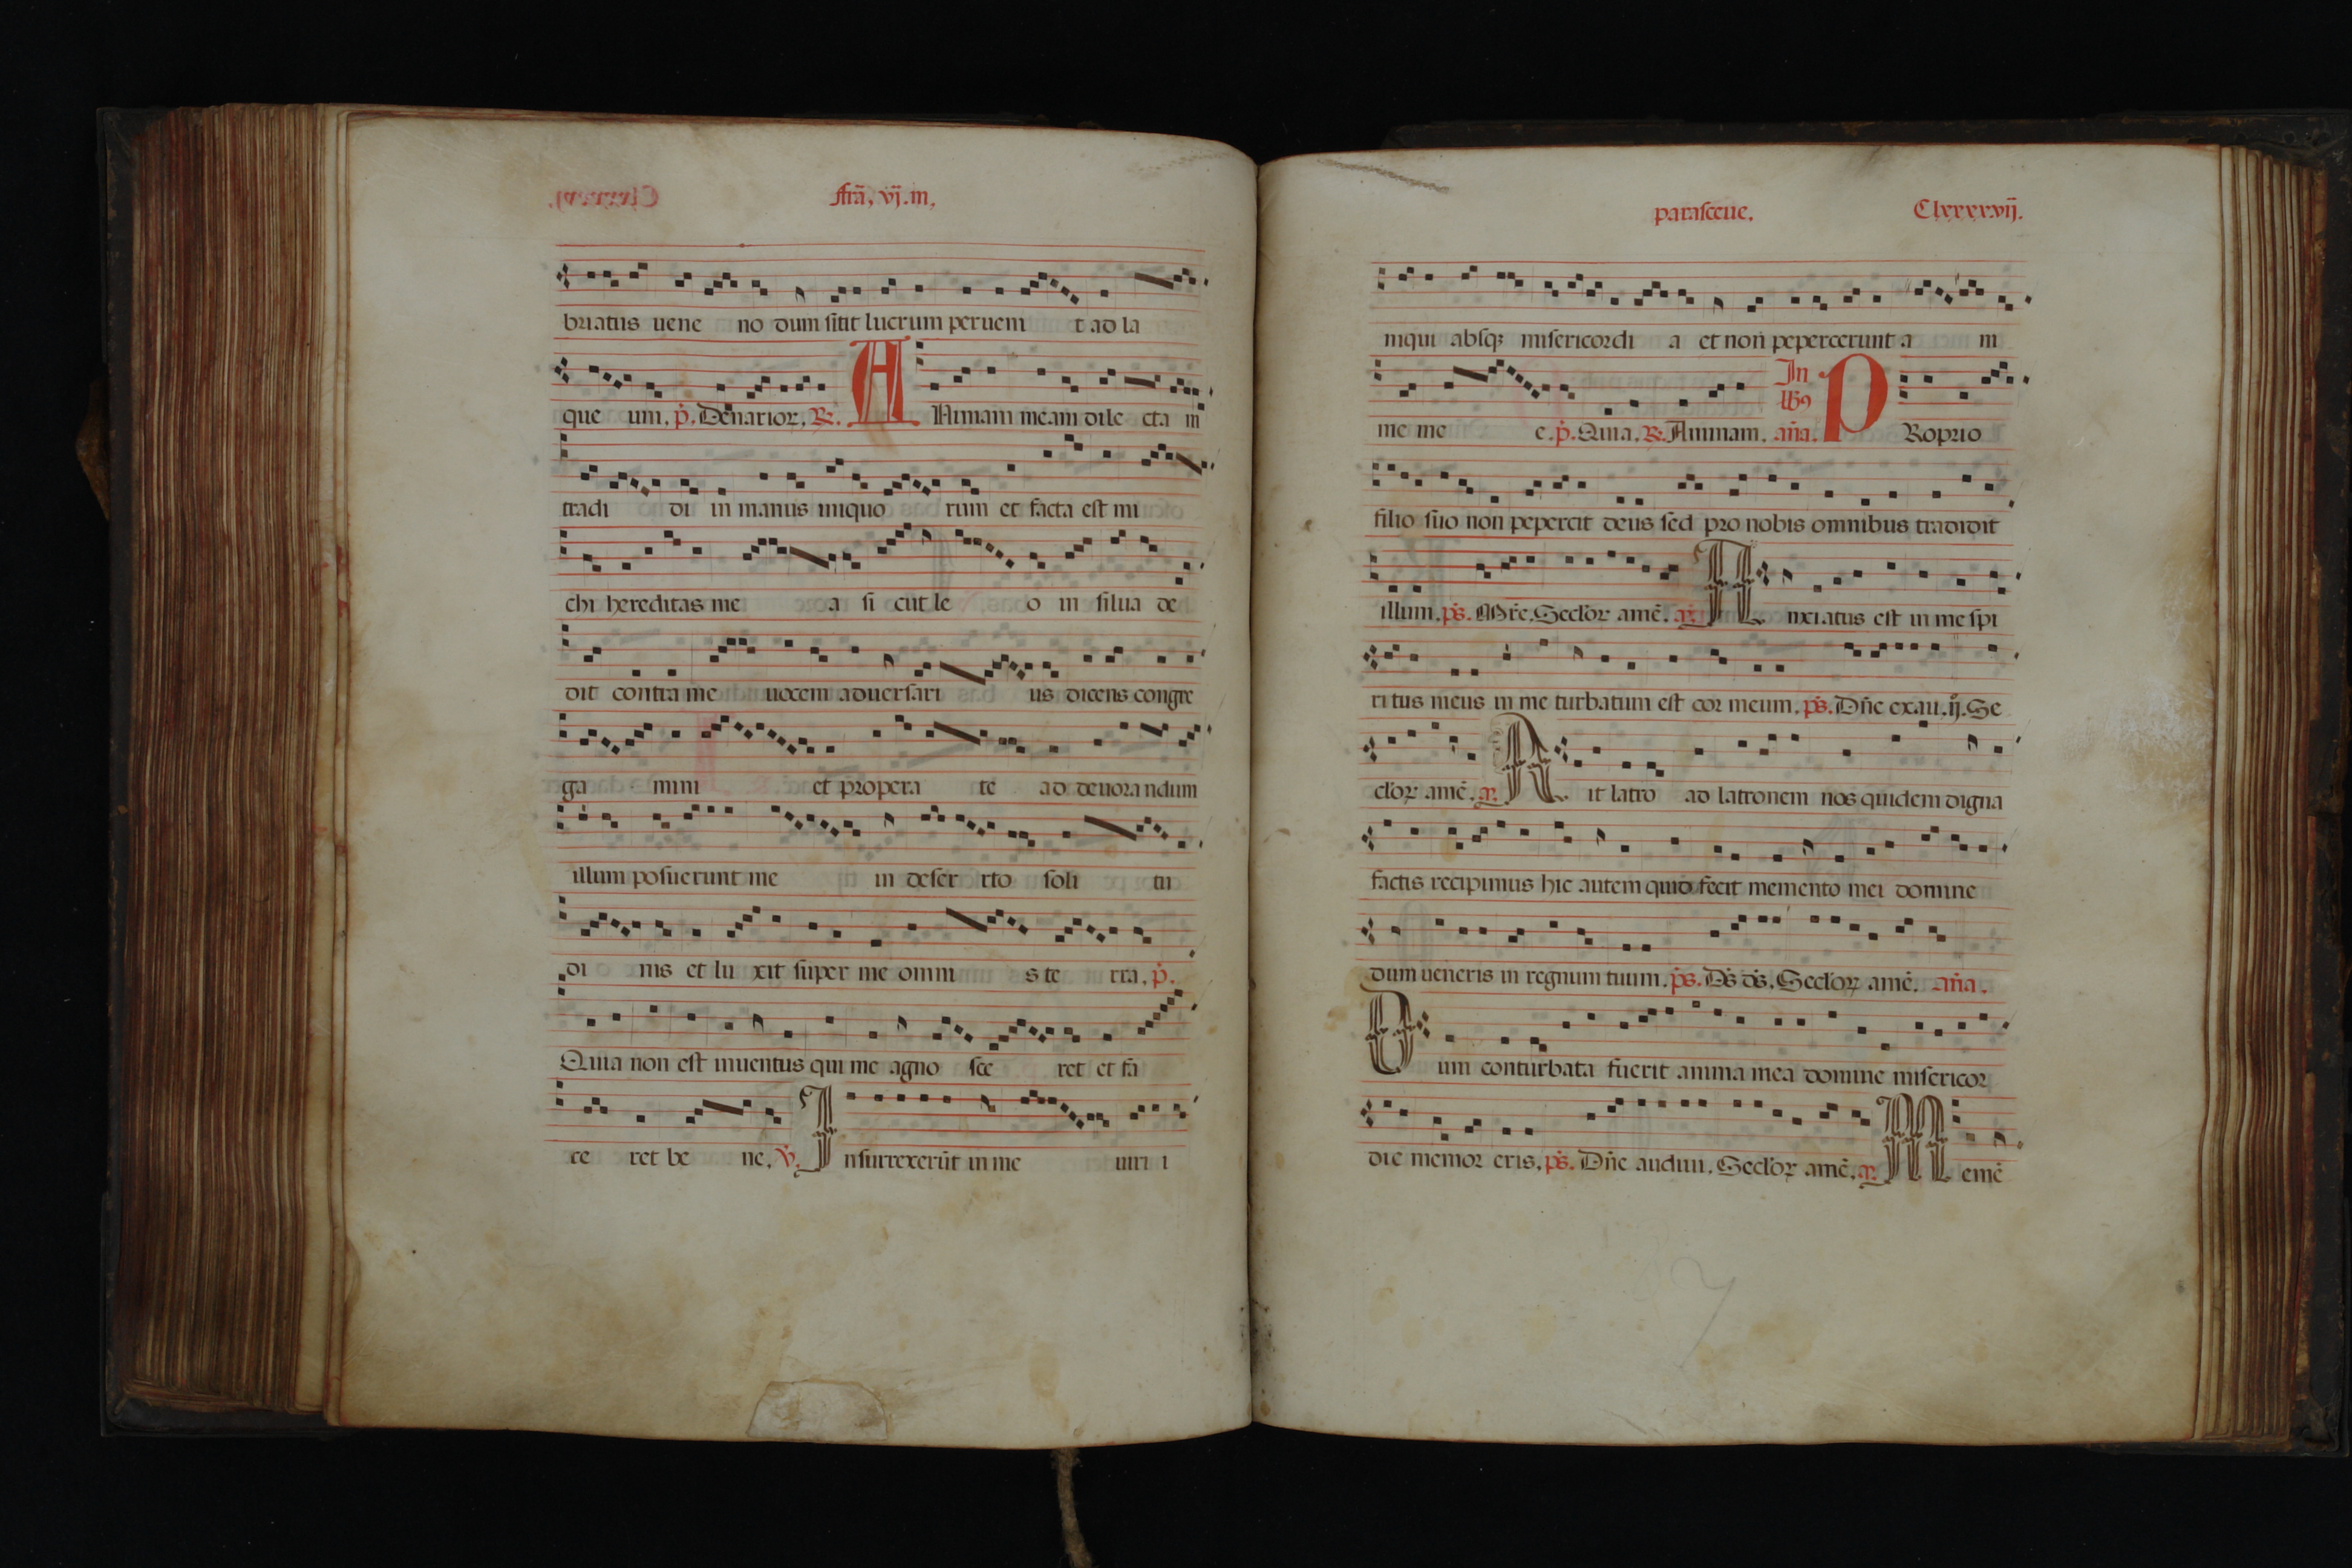 frã, vj. in,
briatus uene no dum sitit lucrum peruem t ad la
que um. p̃. Denarior, R. A Nimam meam dile cta in
tradi di in manus iniquo rum et facta est mi
chi hereditas me a si cut le o in silua de
dit contra me uocem aduersari us dicens congre
ga mini et propera te ad deuorandum
illum posuerunt me in deser rto soli tu
di nis et lu xit super me omni s te rra, p̃.
Quia non est inuentus qui me agno sce ret et fa
ce ret be ne, v̄. I nsurrexerūt in me uiri i
parasceue. Clxxxxvij.
niqui absqꝫ misericordi a et non pepercerunt a ni
me me e. p̃. Quia. R. Animam. In lbꝰ an̄a. P Roprio
filio suo non pepercit deus sed pro nobis omnibus tradidit
illum. ps̄. Mr̄e. Seclorꝝ amē. A nxiatus est in me spi
ritus meus in me turbatum est cor meum. ps̄. Dn̄e exau. ij. Se
clorꝝ amē. A it latro ad latronem nos quidem digna
factis recipimus hic autem quid fecit memento mei domine
dum ueneris in regnum tuum. ps̄. Ds̄ ds̄. Seclorꝝ amē. an̄a.
C um conturbata fuerit anima mea domine misericor
die memor eris, ps̄. Dn̄e audiui. Seclorꝝ amē. M emē